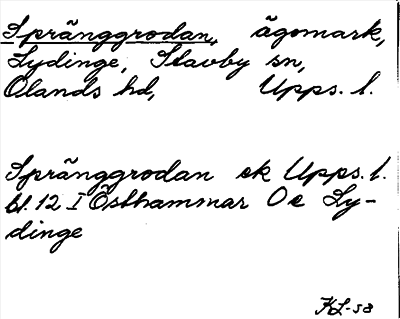 Spränggrodan, ägomark,
Lydinge, Stavby sn,
Olands hd, Upps. l.
Spränggrodan ek Upps. l.
bl. 12 I Östhammar Oe Ly-
dinge
KL-58